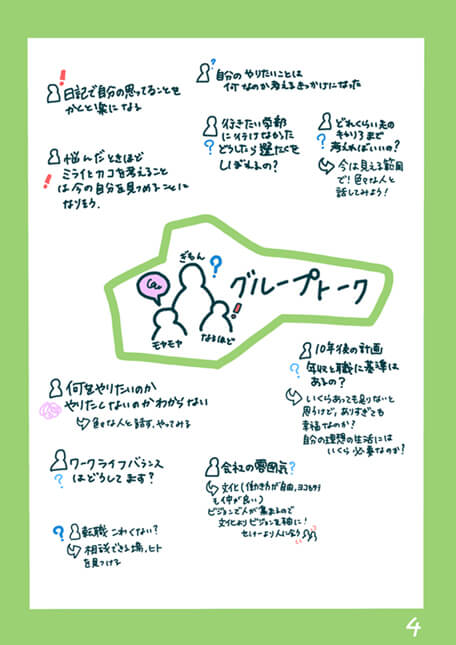 !
日記で自分の思ってることを
かくと楽になる
?
自分のやりたいことは
何なのか考えるきっかけになった
悩んだときほど
ミライとカコを考えること
は今の自分を見つめることに
なりそう.
!
行きたい学部
に行けなかった
?
どうしたら選たくを
しぼれるの?
どれくらい先の
キャリアまで
?
考えればいいの?
今は見える範囲
で!色々な人と
話してみよう!
ぎもん
?
!
モヤモヤ
なるほど
グループトーク
10年後の計画
?
年収と職に基準は
あるの?
いくらあっても足りないと
思うけど,ありすぎても
幸福なのか?
自分の理想の生活には
いくら必要なのか?
何をやりたいのか
やりたくないのかわからない
色々な人と話す,やってみる
?
ワークライフバランス
はどうしてます?
会社の雰囲気?
文化(働き方が自由,ヨコもタテ
も仲が良い)
ビジョンで人が集まるので
文化よりビジョンを軸に!
セミナーより人に会う
?
転職こわくない?
相談できる場,ヒト
を見つける
4